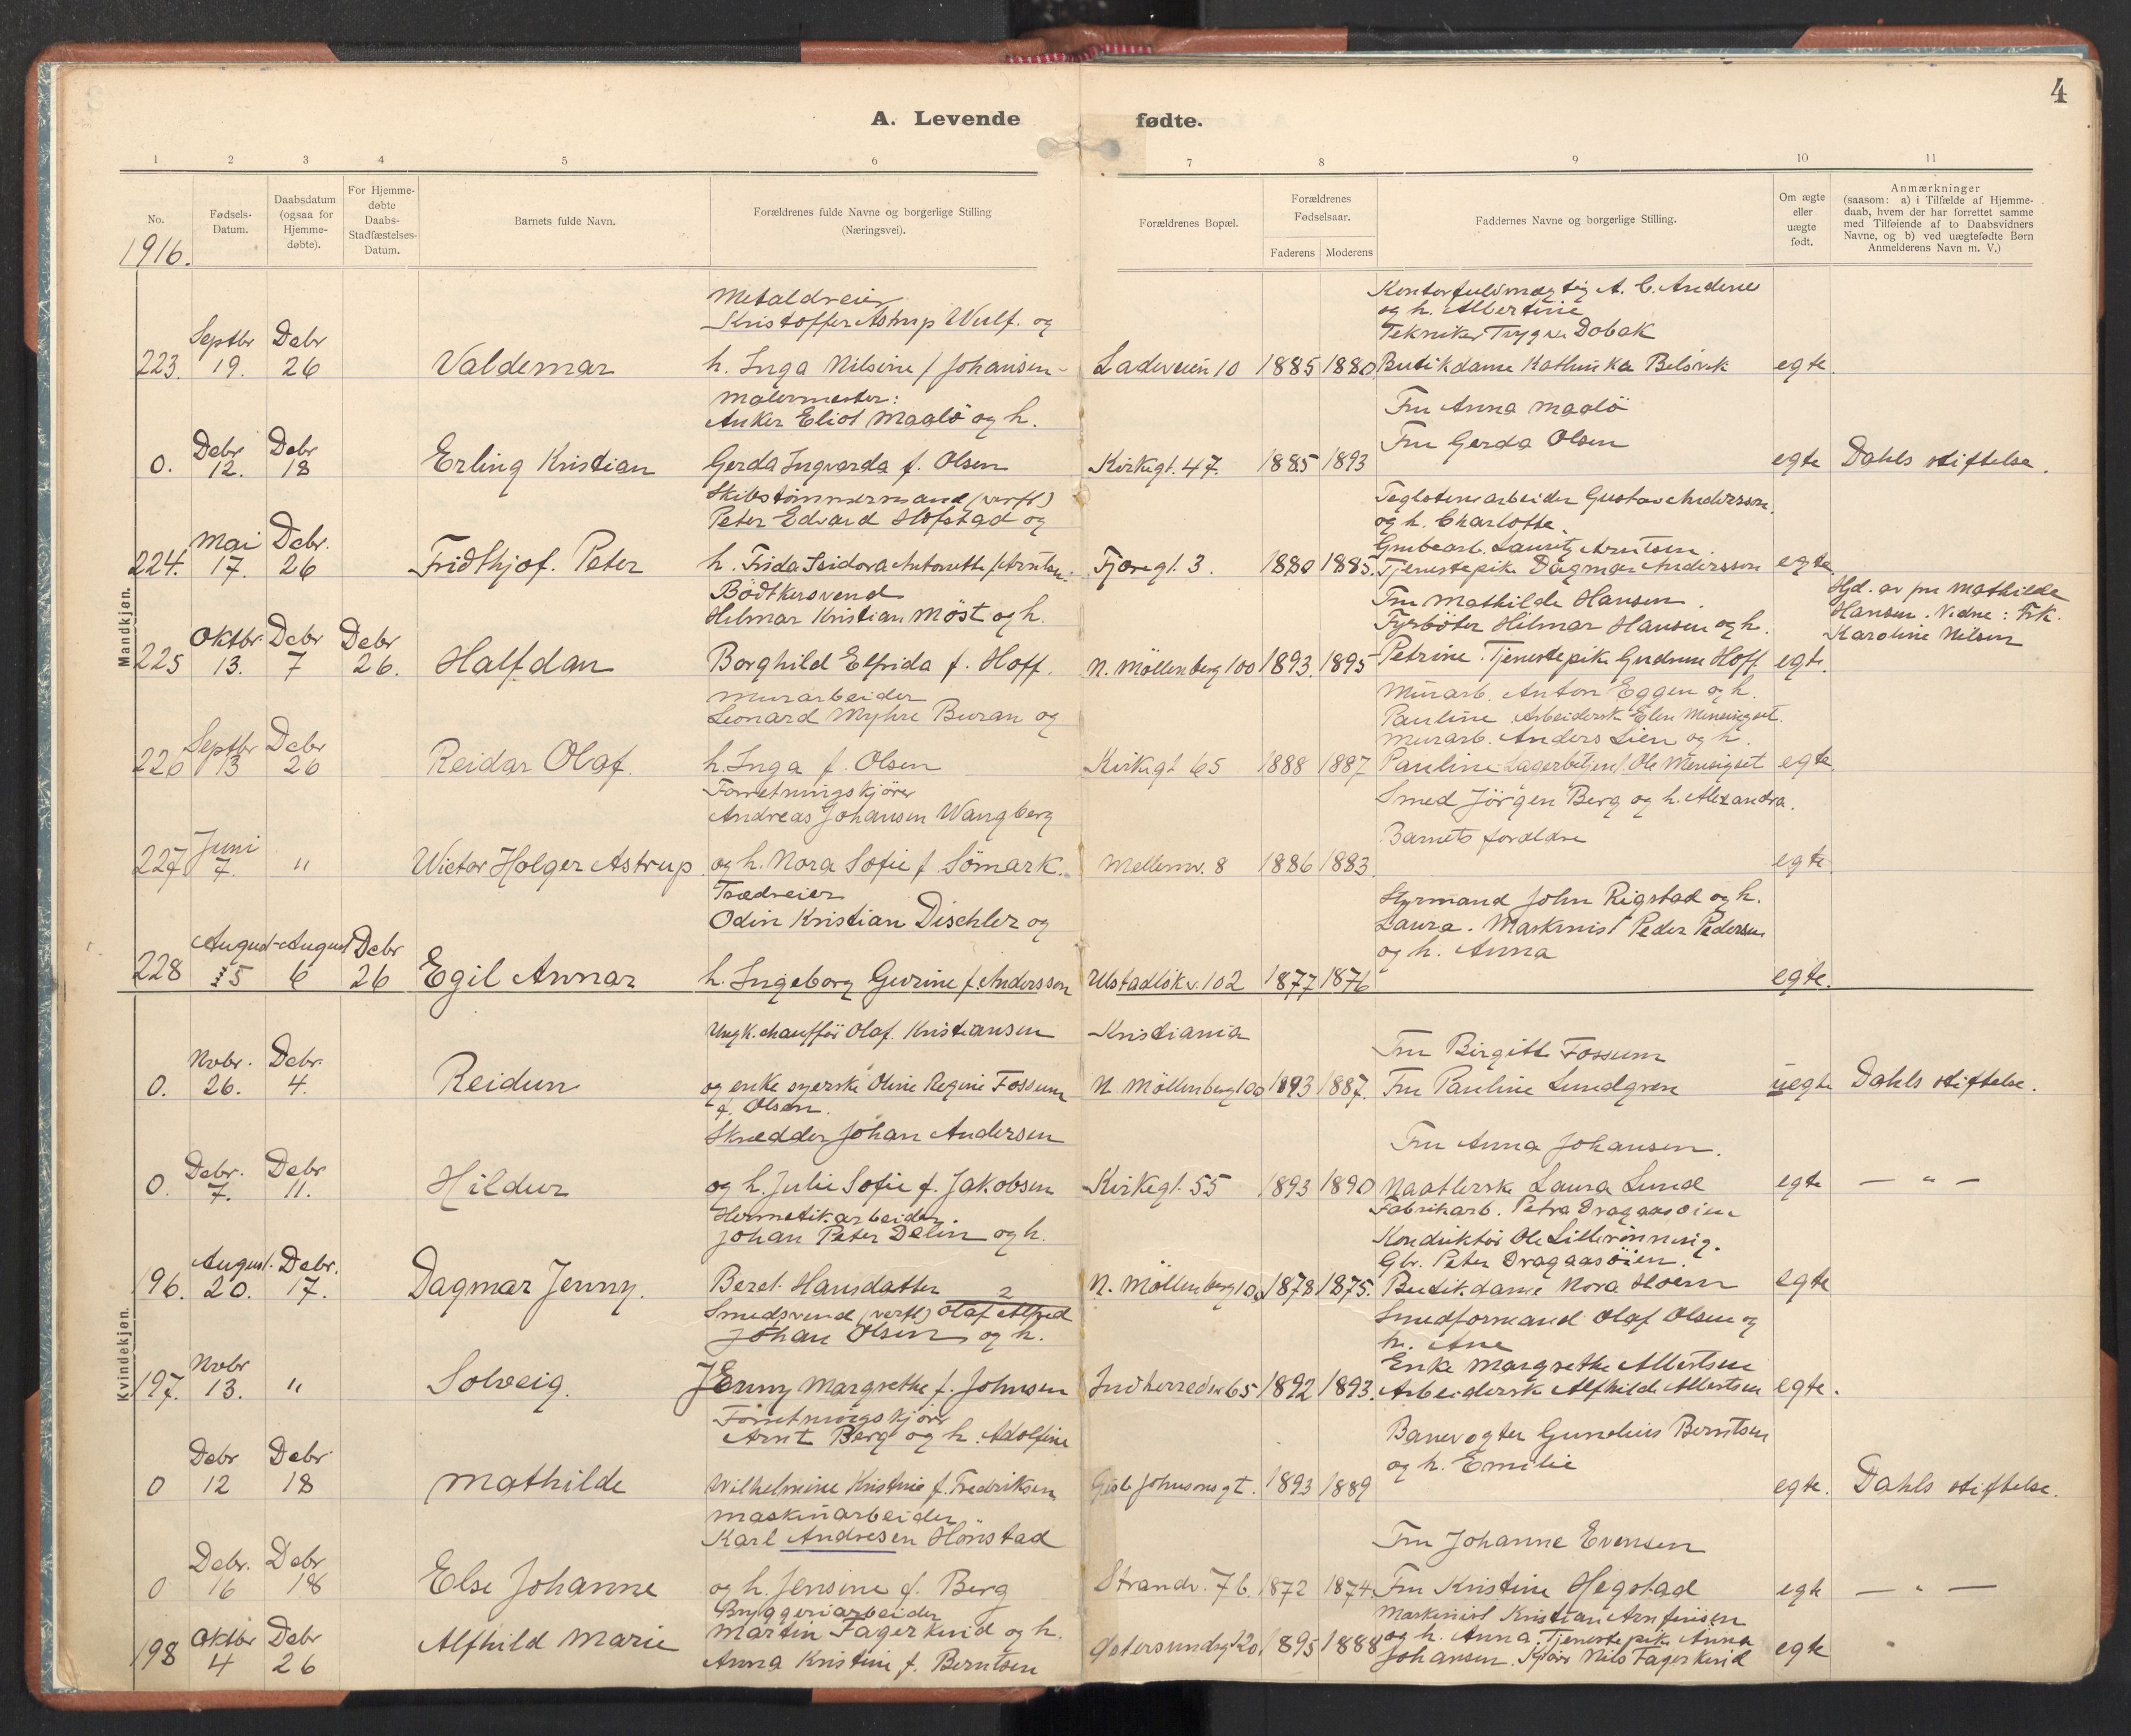 4
A. Levende fødte.
1 2 3 4 5 6 7 8 9 10 11
No.
Fødsels-
Datum.
Daabsdatum
(ogsaa for
Hjemme-
døbte).
For Hjemme-
døbte
Daabs-
Stadfæstelses-
Datum.
Barnets fulde Navn.
Forældrenes fulde Navne og borgerlige Stilling
(Næringsvei).
Forældrenes Bopæl.
Forældrenes
Fødselsaar.
Faderens Moderens
Faddernes Navne og borgerlige Stilling.
Om ægte
eller
uægte
født.
Anmærkninger
(saasom: a) i Tilfælde af Hjemme-
daab, hvem der har forrettet samme
med Tilføiende af to Daabsvidners
Navne, og b) ved uægtefødte Børn
Anmelderens Navn m. V.)
1916.
Mandkjøn.
223. Septbr 19. Debr 26
Valdemar
Metaldreier
Kristoffer Astrup Wulf. og
h. Inga Nilsine f. Johansen
Ladeveien 10 1885 1880
og h. Albertine
Tekniker Trygve Dobak
Butikdame Kathinka
egte.
0. Debr 12. Debr 18
Erling Kristian
Malermester:
Anker Eliot Maalö og h.
Gerda Ingvarda f. Olsen
Kirkegt. 47. 1885 1893
Fru Anna Maalö
Fru Gerda Olsen
egte Dahls stiftelse.
224. Mai 17. Debr. 26
Fridthjof. Peter
Skibstömmermand (verft)
Peter Edvard Hofstad og
h. Frida Isidora Antonette f. Arntsen.
Fjæregt. 3. 1880 1885.
Teglstensarbeider Gustav Andersson.
og h. Charlotte.
Grubearb. Lauritz Arntsen.
Tjenestepike Dagmar Andersson
egte.
225 Oktbr. 13. Debr 7 Debr 26.
Halfdan
Bödtkersvend
Hilmar Kristian Möst og h.
Borghild Elfrida f. Hoff.
N. Möllenberg 100 1893. 1895
Fru Mathilde Hansen.
Fyrböter Hilmar Hansen og h.
Petrine. Tjenestepike Gudrun Hoff
egte.
Hjd. av fru Mathilde
Hansen. Vidne: Frk.
Karoline Nilsen
226 Septbr 13 Debr 26
Reidar Olaf.
Murarbeider
Leonard Myhre Buran og
h. Inga f. Olsen
Kirkegt 65 1888 1887
Murarb. Anton Eggen og h.
Pauline. Arbeidersk. Elen Mensingset.
Murarb. Anders Lien og h.
Pauline Lagerbetjent Ole Mensigset
egte.
227 Juni 7. "
Wictor Holger Astrup
Forretningskjörer
Andreas Johansen Wangberg
og h. Nora Sofie f. Sömark.
Mellemv. 8 1886 1883
Smed Jörgen Berg og h. Alexandra.
Barnets forældre
egte
228 August 5 August 6 Debr 26
Egil Annar
Trædreier
Odin Kristian Dischler og
h. Ingeborg Gurine f. Andersson
Ulstadlökv. 102 1877 1876
Styrmand John Rigstad og h.
Laura. Maskinist Peder Pedersen
og h. Anna
egte.
Kvindekjøn.
0. Novbr. 26. Debr. 4.
Reidun
Ungk. chaufför Olaf. Kristiansen
og enke syerske Oline Regine Fossum
f. Olsen.
Kristiania
N. Möllenberg 100 1893 1887.
Fru Birgitte Fossum
Fru Pauline Lundgren
uegte Dahls stiftelse.
0. Debr. 7. Debr 11.
Hildur
Skrædder Johan Andersen
og h. Julie Sofie f. Jakobsen
Kirkegt. 55 1893 1890
Fru Anna Johansen.
Naatlersk Laura Lund
egte — " —
196. August. 20. Debr. 17.
Dagmar Jenny.
Hermetikarbeider.
Johan Peter Delin og h.
Beret Hansdatter
N. Möllenberg 1878 1875.
Fabrikarb. Petra Dragaasöien
Konduktör Ole Lillerönning.
Gbr. Peter Dragaasöien.
Butikdame Nora Hoem
egte
197. Novbr 13. "
Solveig.
Smedsvend (verft) Olaf Alfred
Johan Olsen og h.
Jenny Margrethe f. Johnsen
Indherredsv 65 1892 1893.
Smedformand Olaf Olsen og
h. Ane
Enke Margrethe Albertsen
Arbeiderske Alfhilde Albertsen
egte.
0 Debr 12 Debr 18
Mathilde
Forretningskjörer
Arnt Berg og h. Adolfine
Wilhelmine Kristine f. Fredriksen
Gisle Johnsonsgt. 1893 1889
Banevogter Gunelius Berntsen
og h. Emilie
egte. Dahls stiftelse.
0 Debr. 16 Debr 18
Else Johanne
Maskinarbeider
Karl Andresen Hönstad
og h. Jensine f. Berg
Strandv. 76. 1872 1874.
Fru Johanne Evensen
Fru Kristine Hegstad
egte — " —
198 Oktbr 4 Debr 26
Alfhild Marie
Bryggeriarbeider
Martin Fagerkind og h.
Anna Kristine f. Berntsen
Östersundsgt 20. 1895 1888
Maskinist Kristian Arnfinsen
og h. Anna. Tjenestepike Anna
Johansen. Nils Fagerkind
egte